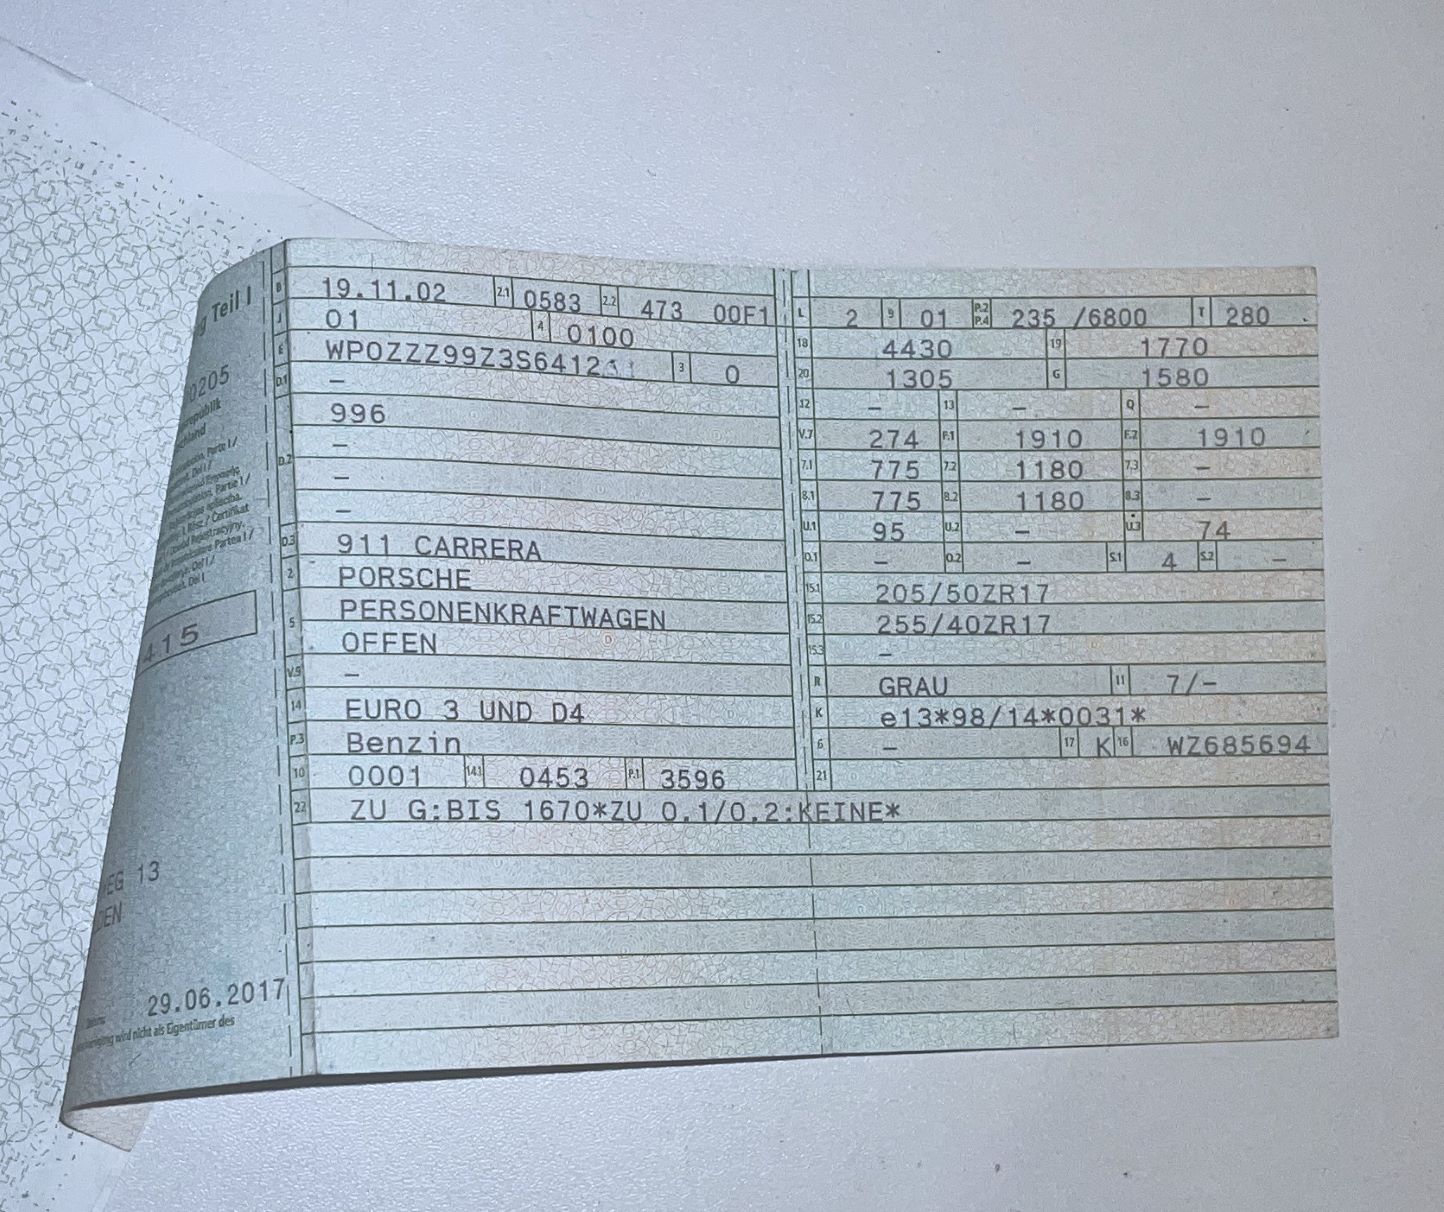 g Teil I
0205
republik
chland
415
EG 13
DEN
29.06.2017
wird nicht als Eigentümer des
B 19.11.02 2.1 0583 2.2 473 00F1
J 01 4 0100
E WP0ZZZ99Z3S6412 3 0
D.1 –
996
D.2 –
–
–
D.3 911 CARRERA
2 PORSCHE
5 PERSONENKRAFTWAGEN
OFFEN
V.9 –
14 EURO 3 UND D4
P.3 Benzin
10 0001 14.1 0453 P.1 3596
22 ZU G:BIS 1670*ZU O.1/O.2:KEINE*
L 2 9 01 P.2 P.4 235 /6800 T 280
18 4430 19 1770
20 1305 G 1580
12 – 13 – Q –
V.7 274 F.1 1910 F.2 1910
7.1 775 7.2 1180 7.3 –
8.1 775 8.2 1180 8.3 –
U.1 95 U.2 – U.3 74
O.1 – O.2 – S.1 4 S.2 –
15.1 205/50ZR17
15.2 255/40ZR17
15.3 –
R GRAU 11 7/–
K e13*98/14*0031*
6 – 17 K 16 WZ685694
21